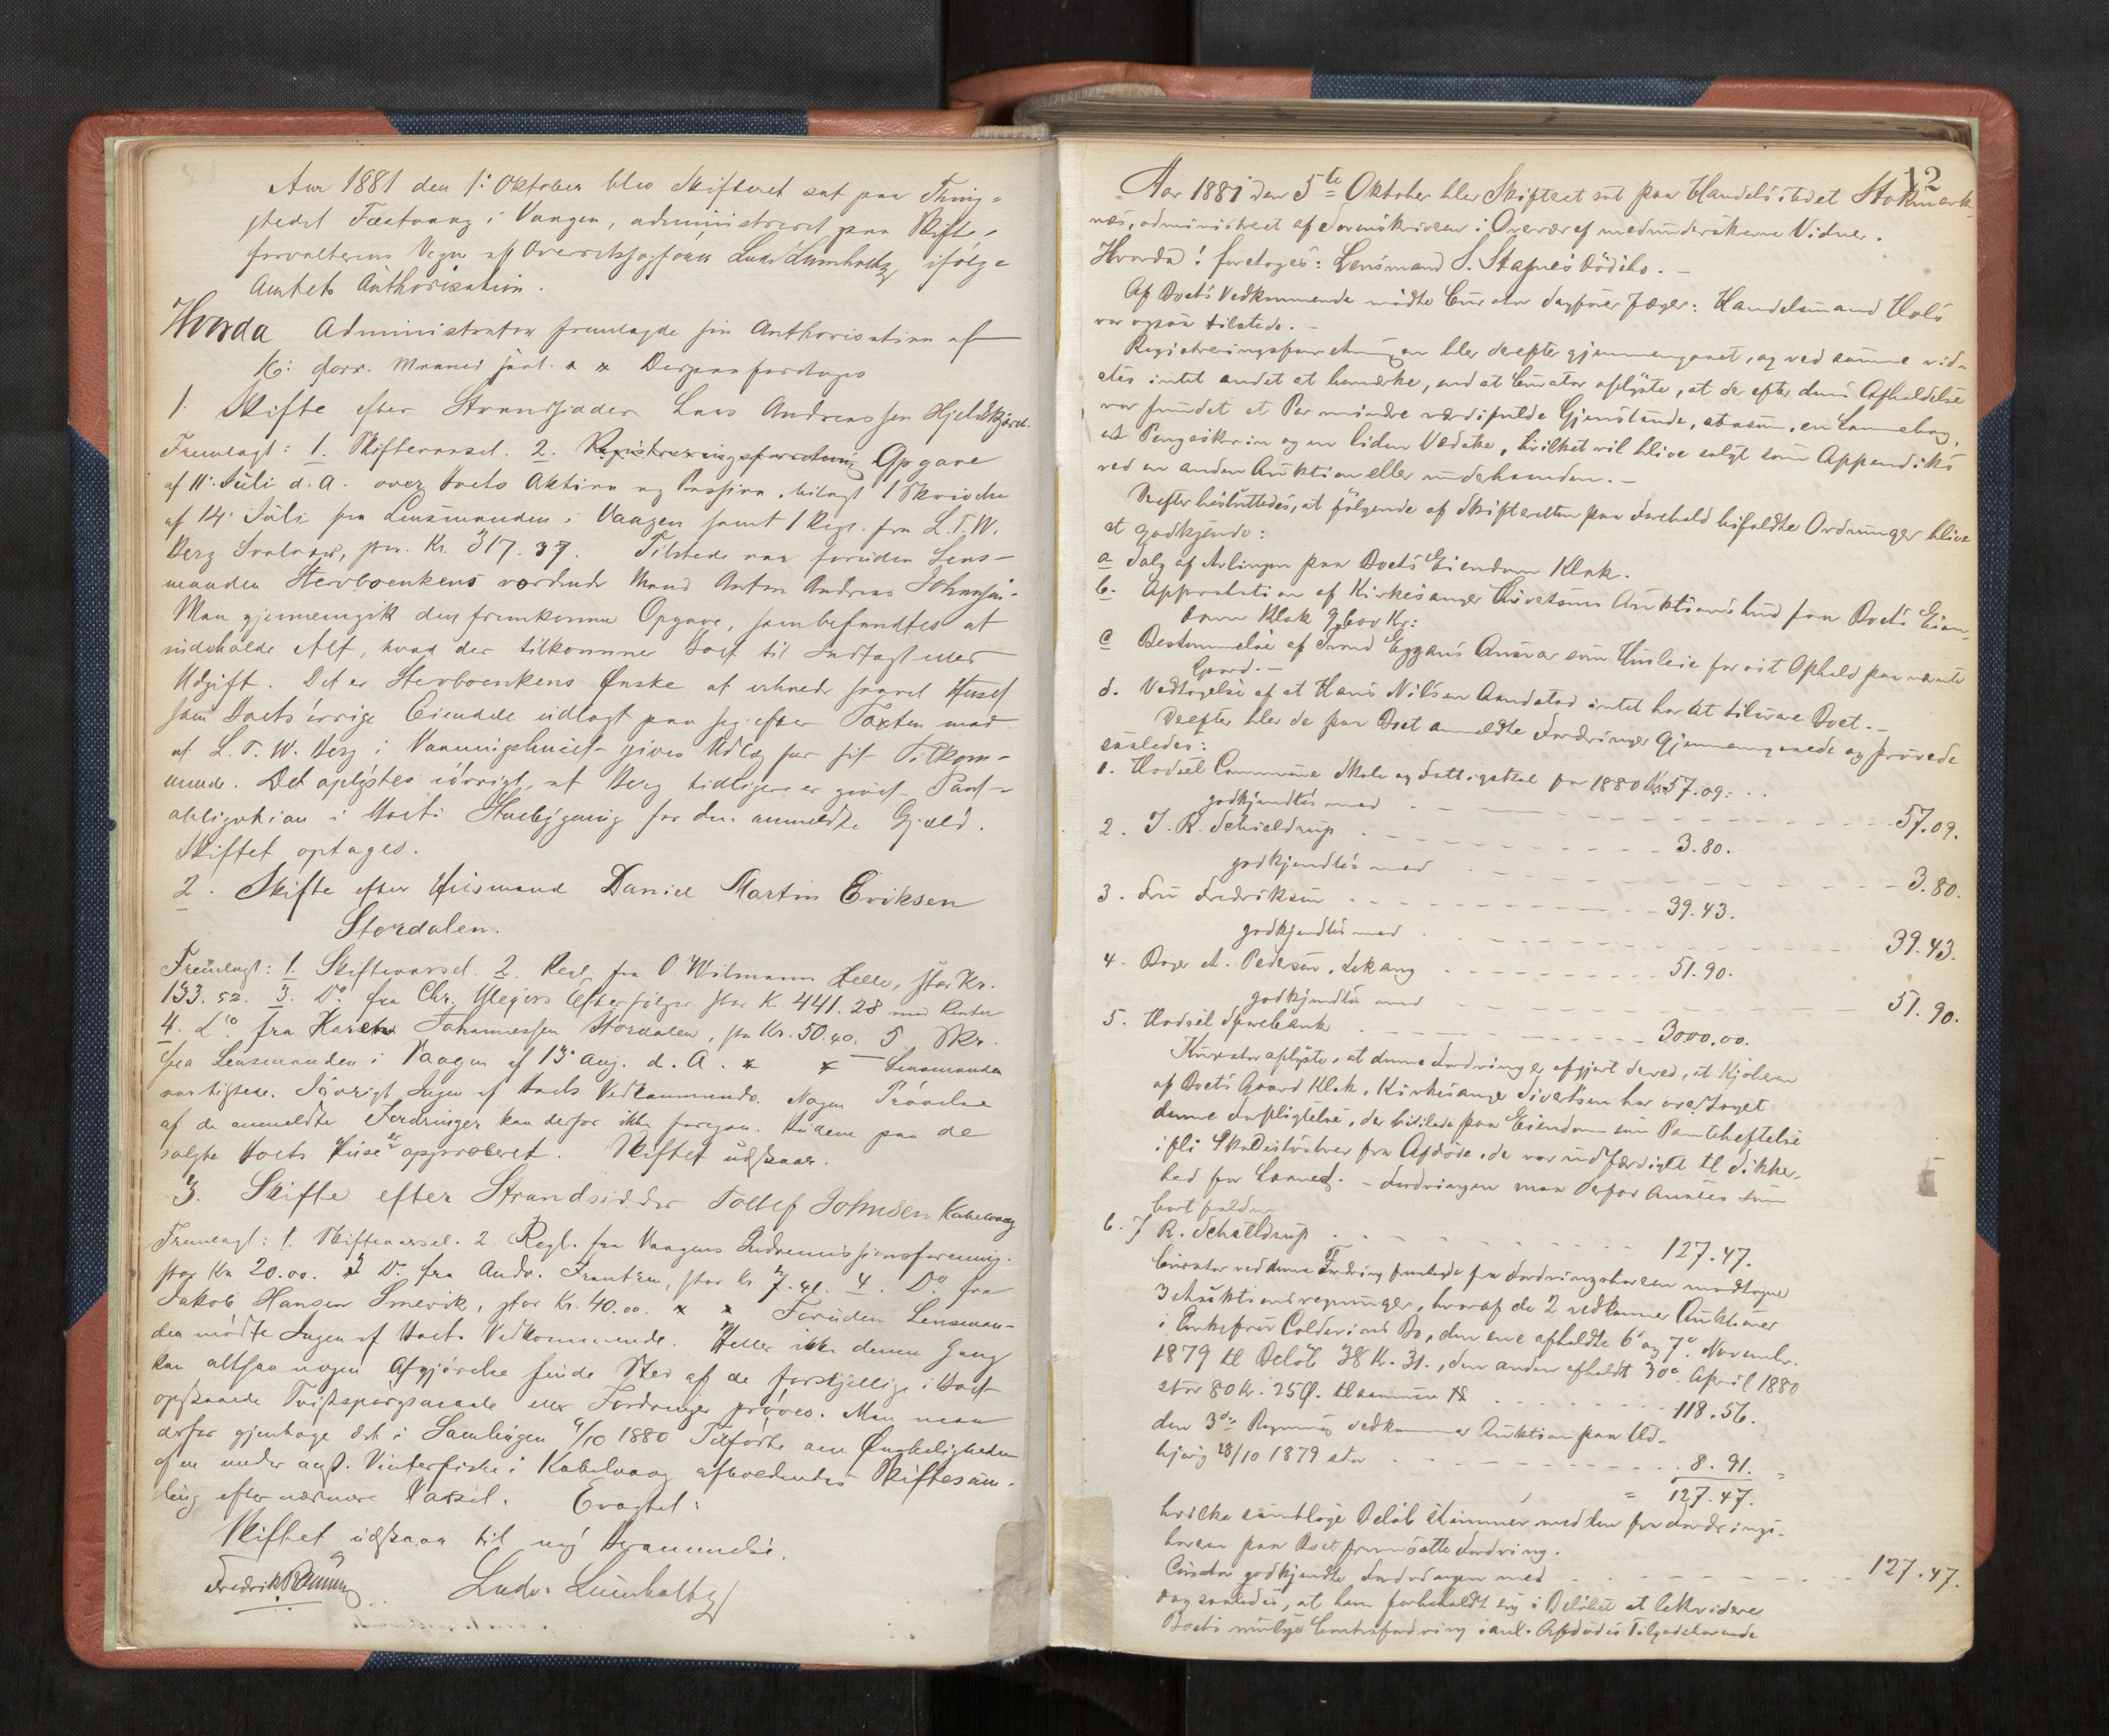 Aar 1881 den 1. Oktober blev Skifteret sat paa Thing-
stedet Festvaag i Vaagen, administreret paa Skifte-
forvalterens Vegne af Overretssagfører Ludv. Lumholtz ifølge
Amtets Authorisation.
Hvorda Administrator fremlagde sin Authorisation af
forr. Maaned Derpaa foretoges
1. Skifte efter Strandsidder Lars Andreassen Hjeldskjæret.
Fremlagt: 1. Skiftevarsel. 2. Registreringsforretning Opgave
af 11. Juli d. A. over Boets Aktiva og Passiva, bilagt 1 Skrivelse
af 14. Juli fra Lensmanden i Vaagen samt 1 Regl. fra L. T. W.
Berg Svolvær, stor Kr. 317.37. Tilstede var foruden Lens-
manden Stervboenkens vordende Mand Anton Andreas Johansen.
Man gjennemgik den fremkomne Opgave, som befandtes at
indeholde Alt, hvad der tilkommer Boet til Indtægt eller
Udgift. Det er Stervboenkens Ønske at erholde saavel Huset
som Boets øvrige Eiendele udlagt paa sig efter Taxten mod
at L. T. W. Berg i Vaaningshuset gives Udlæg for sit Tilkom-
mende. Det oplystes iøvrigt, at Berg tidligere er givet Pant-
obligation i Boets Husebygning for den anmeldte Gjæld.
Skiftet optages.
2. Skifte efter Huusmand Daniel Martin Eriksen
Stordalen.
Fremlagt: 1. Skiftevarsel. 2. Regl. fra O. Wilmann Helle, stor Kr.
133.52. 3. Do fra Chr. Meyers Efterfølger stor Kr. 441.28 med Renter
4. Do fra Karen Johannessen Stordalen, stor Kr. 50.40. 5. Skr.
fra Lensmanden i Vaagen af 13. Aug. d. A. x x Lensmanden
var tilstede. Iøvrigt Ingen af Boets Vedkommende. Nogen Prøvelse
af de anmeldte Fordringer kan derfor ikke foregaa. Budene paa de
solgte Boets Huse er approberet. Skiftet udstaar.
3. Skifte efter Strandsidder Tollef Johnsen Kabelvaag
Fremlagt: 1. Skiftevarsel. 2. Regl. fra Vaagens Indremissionsforening.
stor Kr. 20.00. 3 Do. fra Andr. Frantzen, stor Kr. 7.41. 4. Do fra
Jakob Hansen Smevik, stor Kr. 40.00. x x Foruden Lensman-
den mødte Ingen af Boets Vedkommende. Heller ikke denne Gang
kan altsaa nogen Afgjørelse finde Sted af de forskjellige i Boet
opstaaede Tvistspørgsmaale eller Fordringer prøves. Man maa
derfor gjentage det i Samlingen 4/10 1880 Tilførte om Ønskeligheden
af en under anst. Vinterfiske i Kabelvaag afholdendes Skiftesam-
ling efter nærmere Varsel. Eragtet:
Skiftet udstaar til ny Berammelse.
Fredrik Rønning Ludv. Lumholtz
12
Aar 1881 den 5te Oktober blev Skifteret sat paa Handelsstedet Stokmark-
næs, administreret af Sorenskriveren i Overvær af medunderskrevne Vidner.
Hvorda! foretoges: Lensmand S. Stafnes Dødsbo. -
Af Boets Vedkommende mødte Curator Sagfører Jæger: Handelsmand Hals
var ogsaa tilstede. -
Registreringsforretningen blev derefter gjennemgaaet, og ved samme vid-
stes intet andet at bemærke, end at Curator oplyste, at der efter dens Afholdelse
var fundet et Par mindre værdifulde Gjenstande, saasom, en Lommebog,
et Pengeskrin og en liden Vedske, hvilket vil blive solgt som Appendiks
ved en anden Auktion eller underhaanden. -
Derefter besluttedes, at følgende af Skifteretten paa Forehold bifaldte Ordninger blive
at godkjende:
a Salg af Avlingen paa Boets Eiendom Klak.
b. Approbation af Kirkesanger Sivertsens Auktionsbud paa Boets Eien-
dom Klak 9600 Kr:
c Bestemmelse af Trond Eggans Ansvar som Husleie for sit Ophold paa nævnte
Gaard. -
d. Vedtagelse af at Hans Nilsen Aandstad intet har at tilsvare Boet. -
Derefter blev de paa Boet anmeldte Fordringer gjennemgaaede og prøvede
saaledes:
1. Hadsel Commune Skole og Fattigskat for 1880 Kr. 57.09.
godkjendtes med 57.09.
2. J. R. Schieldrup 3.80.
godkjendtes med 3.80.
3. Fru Fredriksen 39.43.
godkjendtes med 39.43.
4. Roger A. Pedersen, Lekang 51.90.
godkjendtes med 51.90.
5. Hadsel Sparebank 3000.00.
Kurator oplyste, at denne Fordring er afgjort derved, at Kjøberen
af Boets Gaard Klak, Kirkesanger Sivertsen har overtaget
denne Forpligtelse, der hvilede paa Eiendommen som Panteheftelse
ifl. Skadesløsbrev fra Afdøde, der var udfærdiget til Sikker-
hed for Laanet. - Fordringen maa derfor ansees som
bortfalden
6. J R. Schieldrup 127.47.
Curator ved denne Fordring fremlagde fra Fordringshaveren modtagne
3 Auktionsregninger, hvoraf de 2 vedkommer Auktioner
i Enkefru Colderins Bo, den ene afholdte 6. og 7. Novembr.
1879 til Beløb 38 Kr. 31., den anden afholdt 30. April 1880
stor 80 Kr. 25 Ø. tilsammen 118.56.
den 3die Regning vedkommer Auktion paa Ud-
bjørg 28/10 1879 stor 8.91.
= 127.47.
hvilke samtlige Beløb stemmer med den fra Fordrings-
haveren paa Boet fremsatte Fordring.
Curator godkjendte Fordringen med 127.47.
dog saaledes, at han forbeholdt sig i Beløbet at likvidere
Boets mulige Contrafordring i anl. Afdødes Tilgodehavende